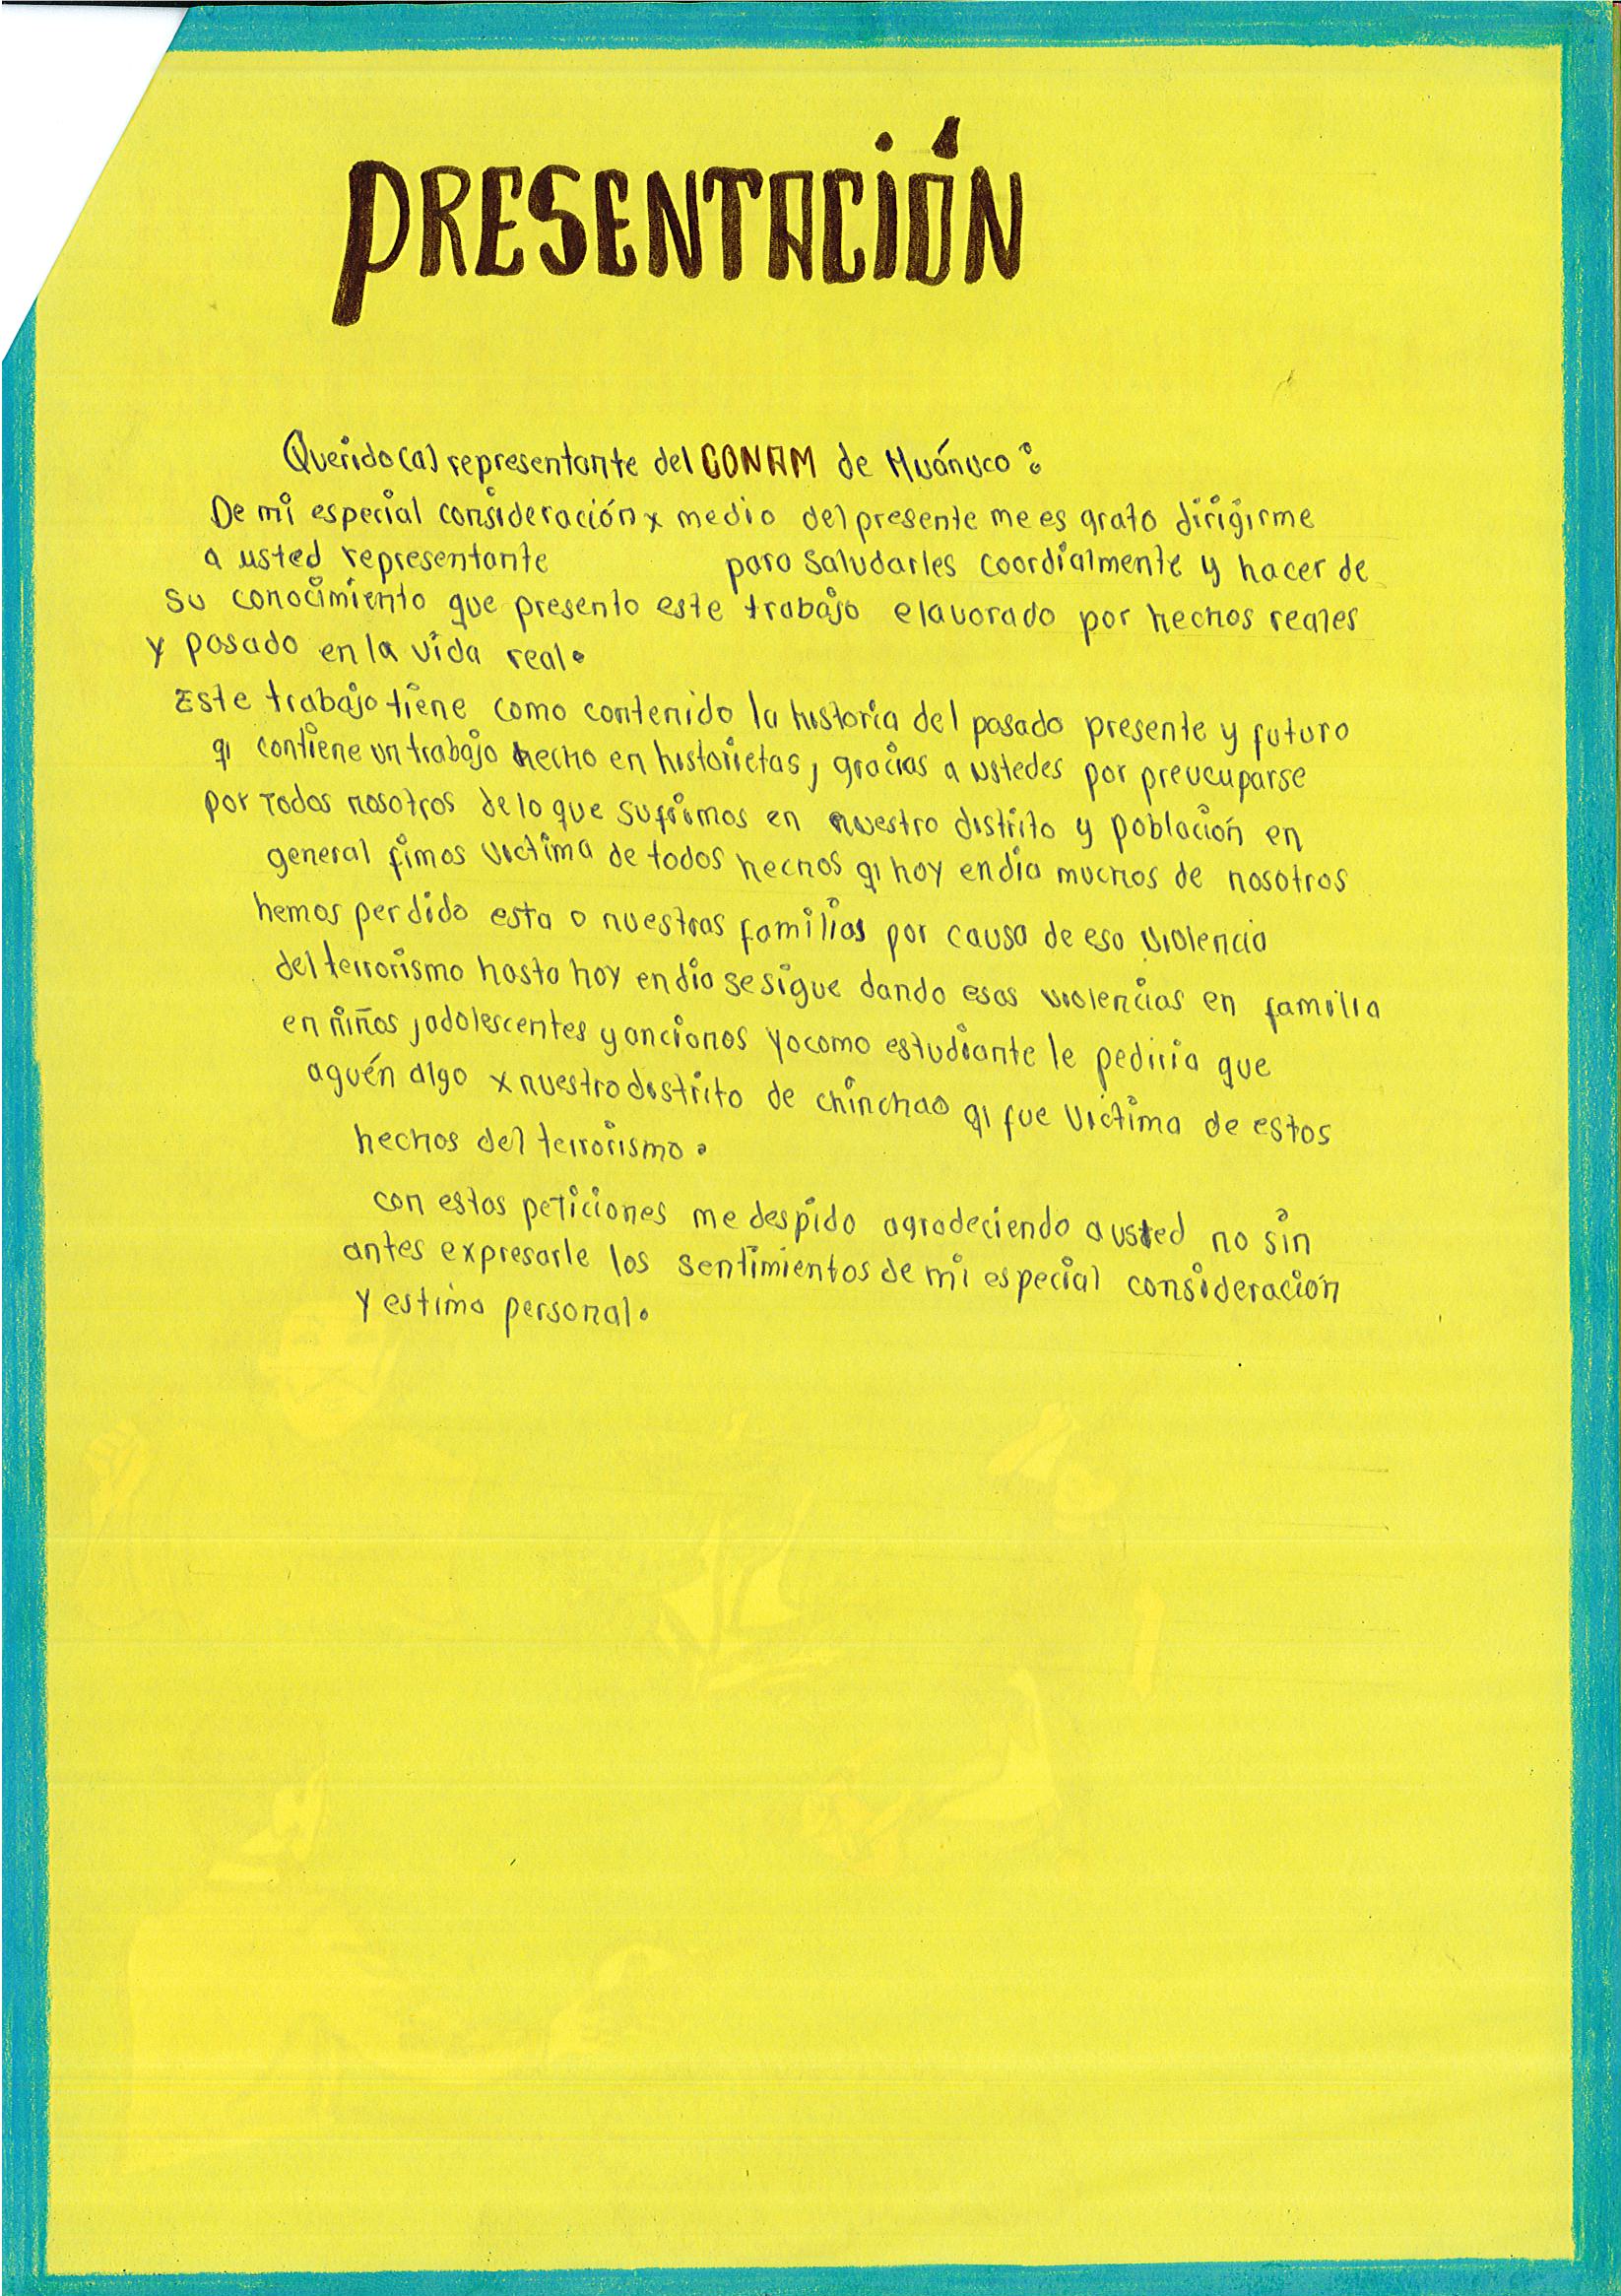 PRESENTACIÓN
Querido(a) representante del CONAM de Huánuco:
De mi especial consideración x medio del presente me es grato dirigirme
a usted representante para saludarles coordialmente y hacer de
su conocimiento que presento este trabajo elavorado por hechos reales
y pasado en la vida real.
Este trabajo tiene como contenido la historia del pasado presente y futuro
qi contiene un trabajo hecho en historietas, gracias a ustedes por preucuparse
por Todos nosotros de lo que sufrimos en nuestro distrito y población en
general fimos victima de todos hechos qi hoy en dia muchos de nosotros
hemos perdido esta o nuestras familias por causa de esa violencia
del terrorismo hasta hoy en dia se sigue dando esas violencias en familia
en niños, adolescentes y ancianos Yo como estudiante le pediria que
aguén algo x nuestro distrito de chinchao qi fue victima de estos
hechos del terrorismo.
con estas peticiones me despido agradeciendo a usted no sin
antes expresarle los sentimientos de mi especial consideración
Y estima personal.